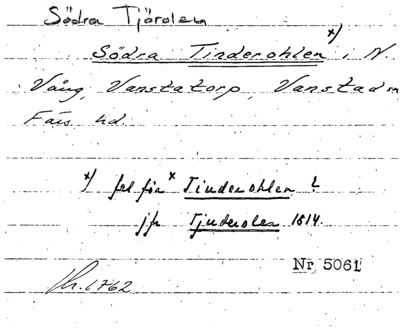 Södra Tjärolen
Södra Tinderohlen x) i N.
Vång, Vanstatorp, Vanstad sn
Färs hd.
x) fel för x Tinderohlen ?
jfr Tjuderolen 1814.
Nr 5061
1762